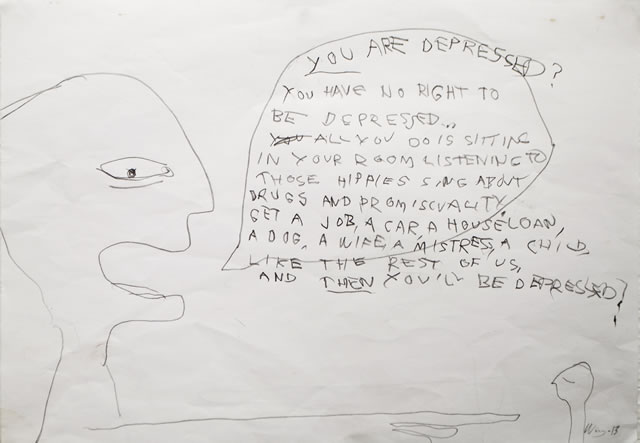 YOU ARE DEPRESSED?
YOU HAVE NO RIGHT TO
BE DEPRESSED...
ALL YOU DO IS SITTING
IN YOUR ROOM LISTENING TO
THOSE HIPPIES SING ABOUT
DRUGS AND PROMISCUALITY.
GET A JOB, A CAR, A HOUSELOAN,
A DOG, A WIFE, A MISTRESS, A CHILD,
LIKE THE REST OF US,
AND THEN YOU'LL BE DEPRESSED!